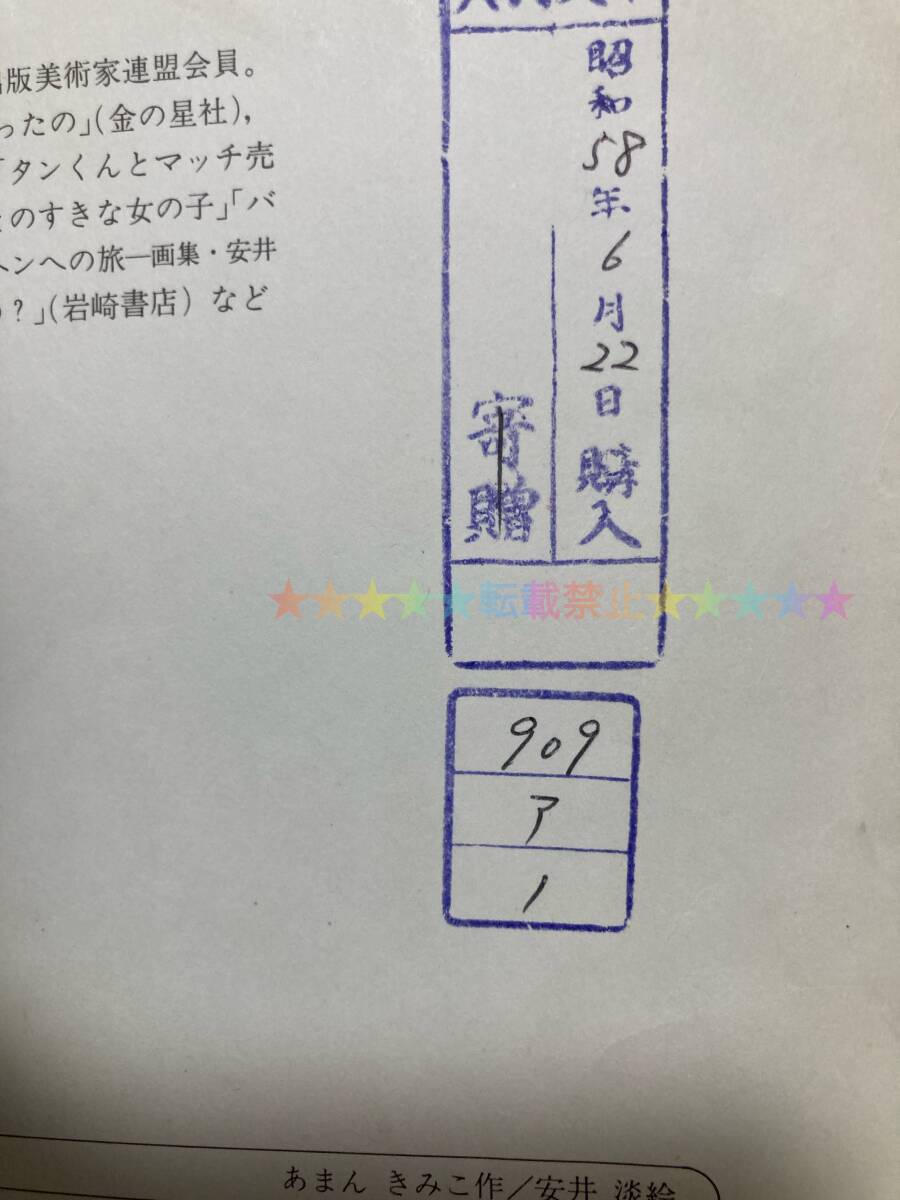 版美術家連盟会員。
ったの」(金の星社),
「タンくんとマッチ売
のすきな女の子」「バ
ヘンへの旅—画集・安井
?」(岩崎書店) など
昭和58年6月22日 購入
寄贈
★★★★★転載禁止★★★★★
909
ア
1
あまん きみこ作/安井 淡絵